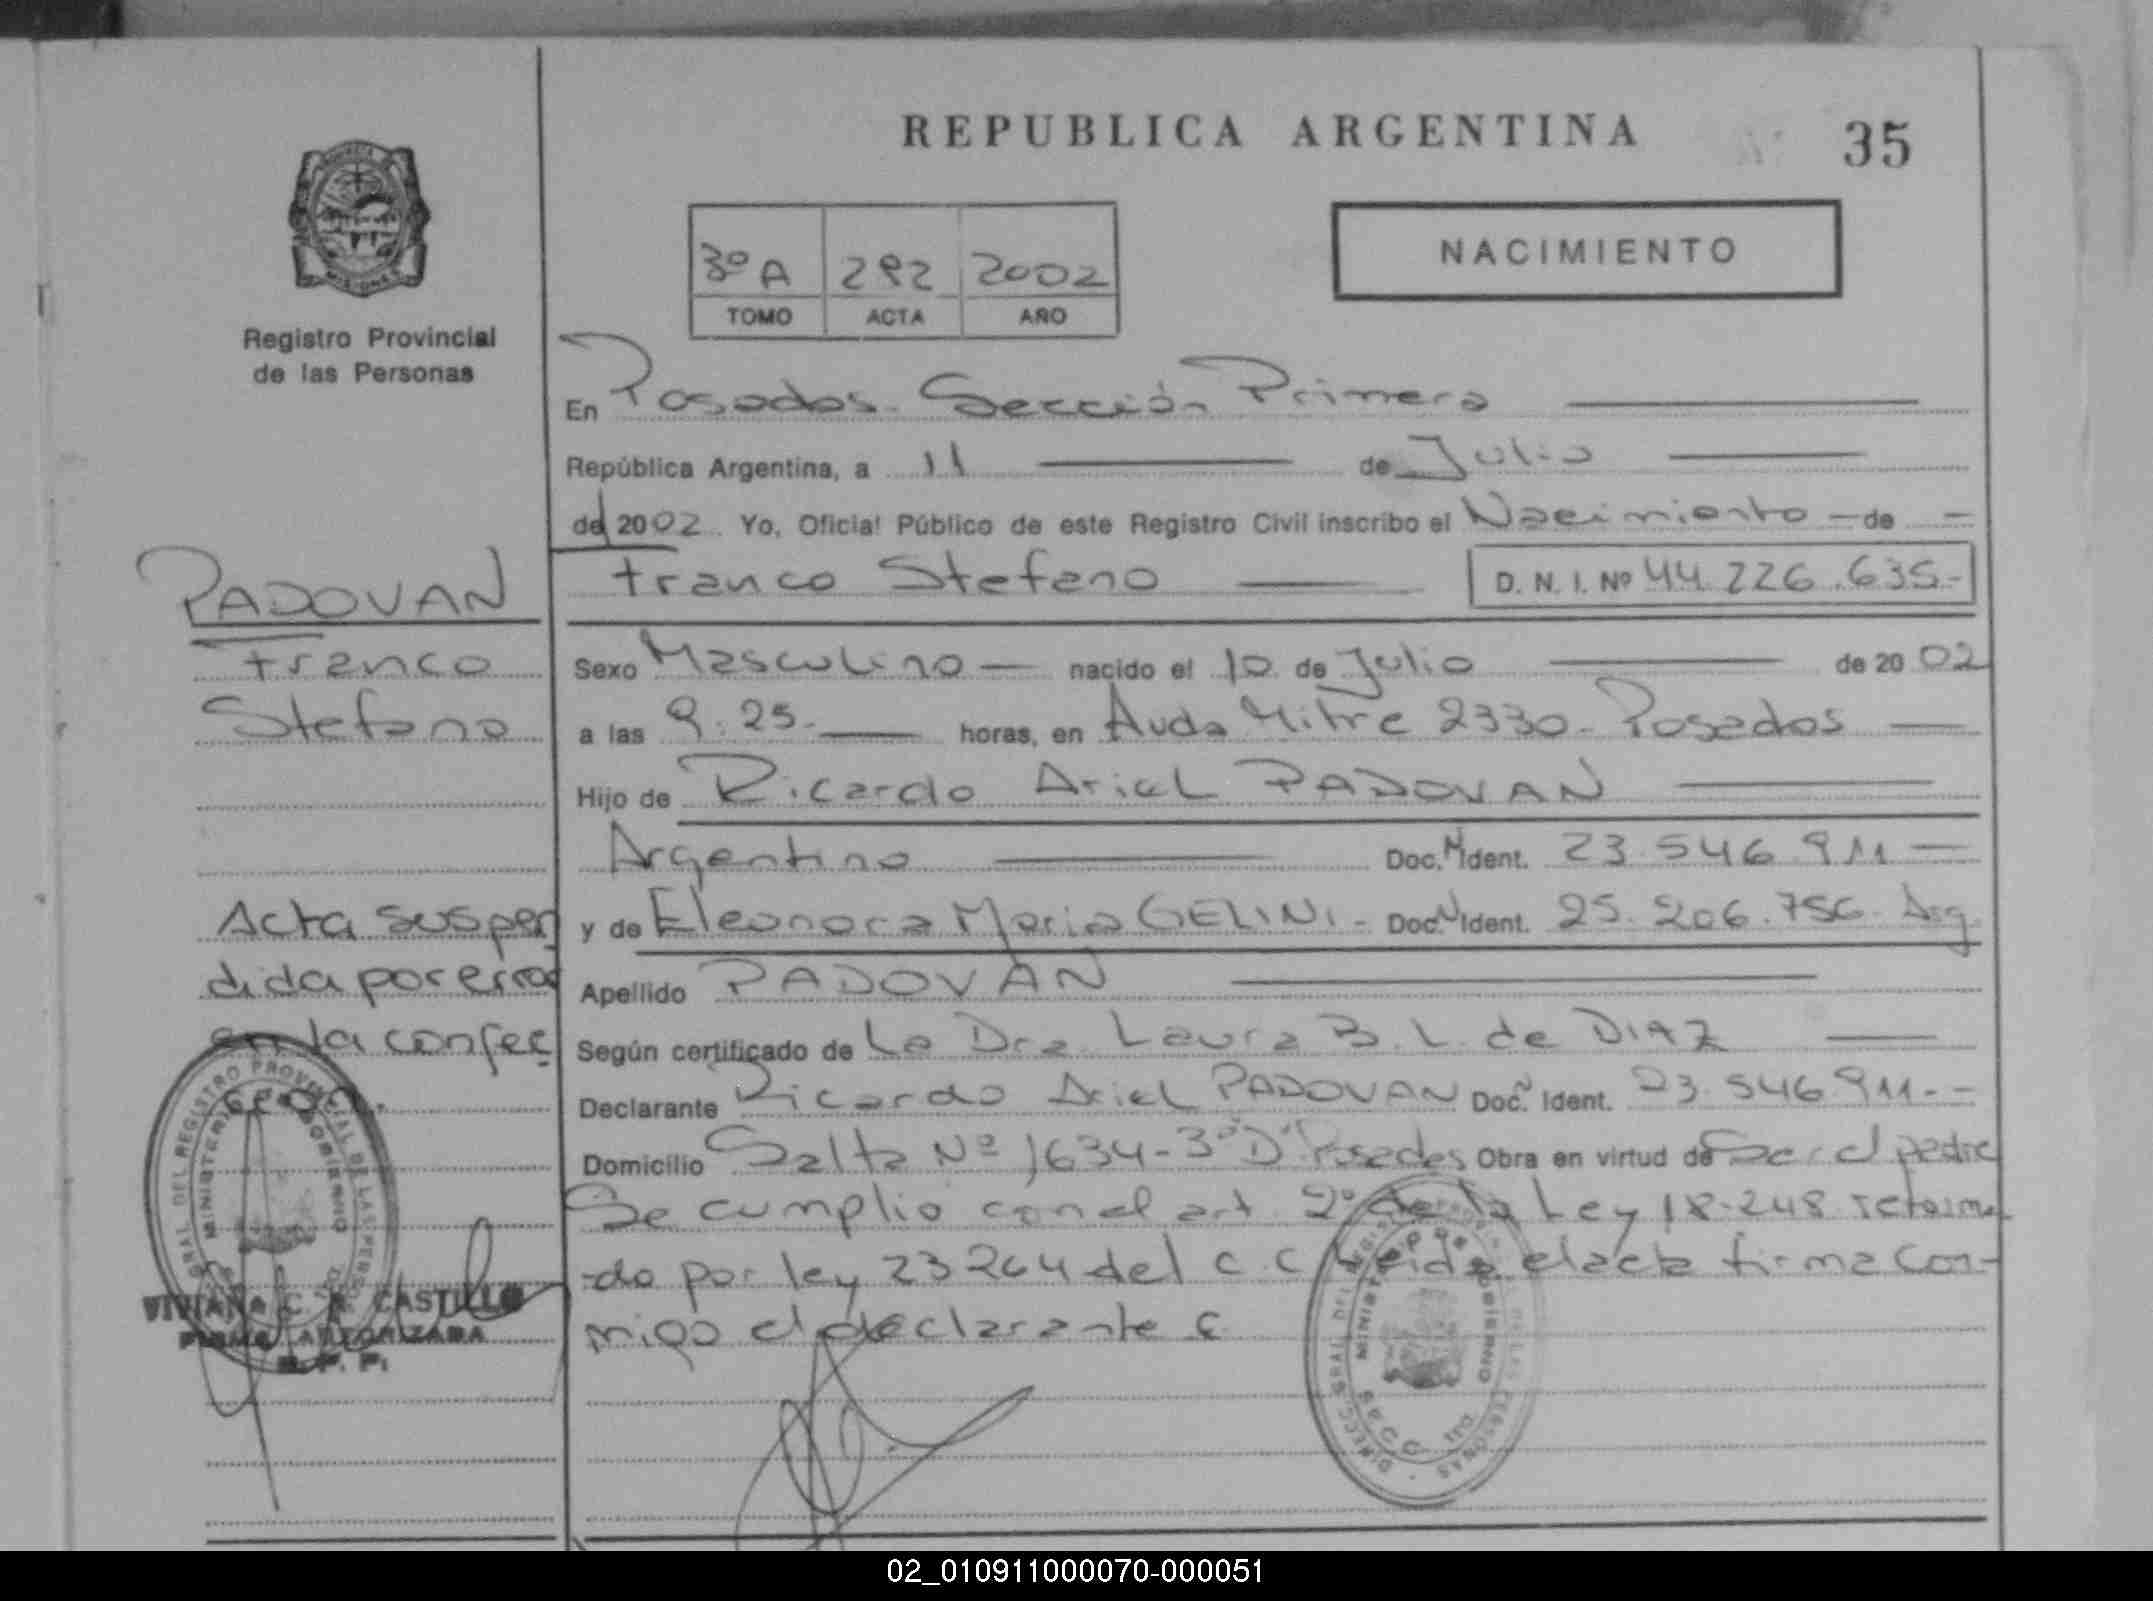 REPUBLICA ARGENTINA
35
3º A 292 2002
TOMO ACTA AÑO
NACIMIENTO
PROVINCIA DE MISIONES
Registro Provincial
de las Personas
En Posadas. Sección Primera
República Argentina, a 11 de Julio
del 2002. Yo, Oficial Público de este Registro Civil inscribo el Nacimiento - de -
Franco Stefano D. N. I. Nº 44.226.635.-
PADOVAN
Franco
Stefano
Sexo Masculino — nacido el 10 de Julio de 20 02
a las 9:25.- horas, en Avda Mitre 2330 - Posadas
Hijo de Ricardo Ariel PADOVAN
Argentino Doc. N Ident. 23.546.911
y de Eleonora Maria GELINI.- Doc. N Ident. 25.206.756. Arg.
Apellido PADOVAN
Según certificado de La Dra. Laura B. L. de DIAZ
Declarante Ricardo Ariel PADOVAN Doc. N Ident. 23.546.911.-
Domicilio Salta Nº 1634 - 3º "D" Posadas Obra en virtud de Ser el padre
Se cumplio con el art. 2º de la Ley 18.248 reforma
-do por ley 23264 del C.C. Leida el acta firma con-
migo el declarante
Acta suspen
dida por error
en la confec
ción.
DIRECC. GRAL DEL REGISTRO PROVINCIAL DE LAS PERSONAS
MINISTERIO DE GOBIERNO
VIVIANA C. R. CASTILLO
FIRMA AUTORIZADA
R. P. P.
DIRECC. GRAL DEL REGISTRO PROVINCIAL DE LAS PERSONAS
MINISTERIO DE GOBIERNO
02_010911000070-000051